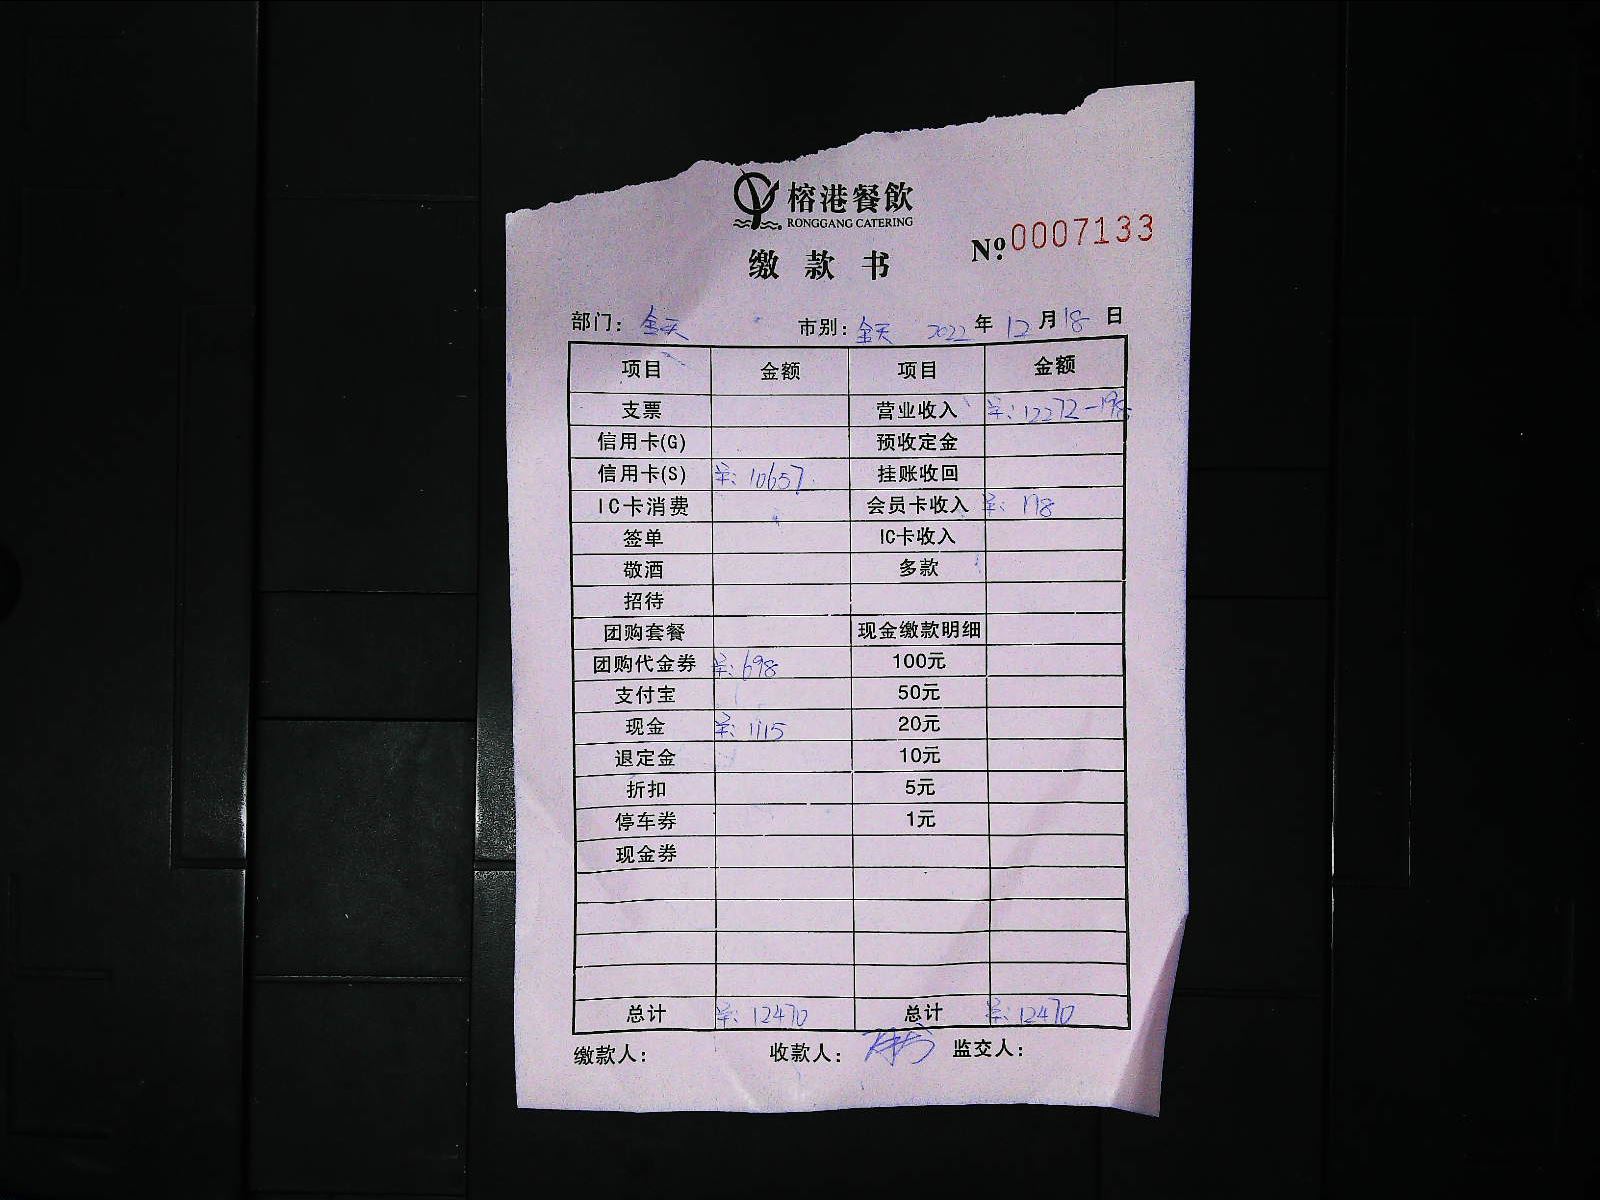 榕港餐飲
RONGGANG CATERING
缴款书
№ 0007133
部门: 全天 市别: 全天 2022 年 12 月 18 日
项目 金额 项目 金额
支票 营业收入 单: 12272-198
信用卡(G) 预收定金
信用卡(S) 单: 10657 挂账收回
IC卡消费 会员卡收入 单: 198
签单 IC卡收入
敬酒 多款
招待
团购套餐 现金缴款明细
团购代金券 单: 698 100元
支付宝 50元
现金 单: 1115 20元
退定金 10元
折扣 5元
停车券 1元
现金券
总计 单: 12470 总计 单: 12470
缴款人: 收款人: 监交人: